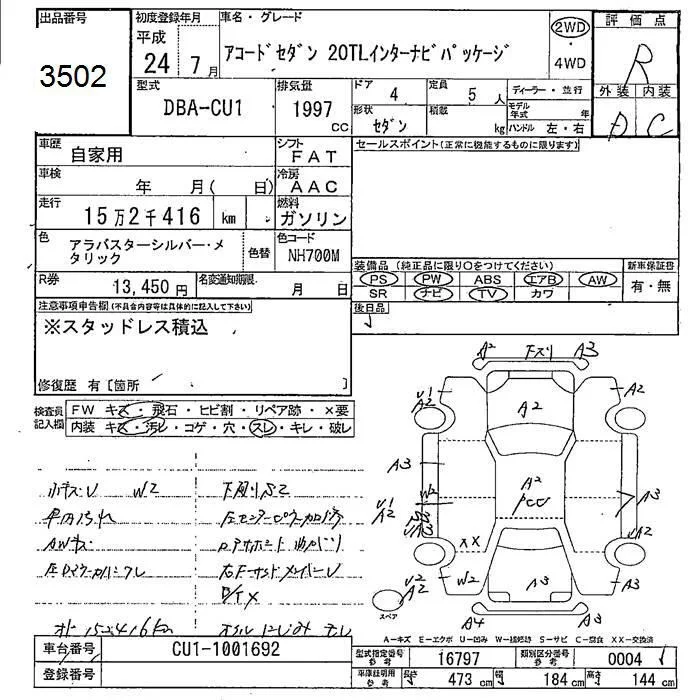 出品番号
3502
初度登録年月
平成
24 7月
車名・グレード
アコードセダン 20TLインターナビパッケージ
2WD
4WD
評価点
R
外装 内装
D C
型式
DBA-CU1
排気量
1997 cc
ドア 4
定員 5 人
ディーラー・並行
形状 セダン
積載 kg
モデル年式 年
ハンドル 左・右
車歴 自家用
シフト FAT
セールスポイント(正常に機能するものに限ります)
車検 年 月( 日)
冷房 AAC
走行 15万2千416 km
燃料 ガソリン
色 アラバスターシルバー・メタリック
色替
色コード NH700M
装備品 (純正品に限り○をつけてください)
新車保証書
PS PW ABS エアB AW
SR ナビ TV カワ
有・無
R券 13,450円
名変通知期限. 月 日
後日品
注意事項申告欄(不具合内容等は具体的に記入して下さい)
※スタッドレス積込
修復歴 有 [箇所 ]
検査員記入欄
FW キズ・飛石・ヒビ割・リペア跡・×要
内装 キズ・汚れ・コゲ・穴・スレ・キレ・破レ
A2 下スリ A3
U1 A2
A2
A2
A3
A2
PCC
W2
U1 A2
A3
XX
W2
UA2
U2 A2
A3
A2
スペア
A4
A3
小キズU W2
下廻りS2
車内汚れ
AWキズ
オド 152416km
オイルにじみ
A-キズ E-エクボ U-凹み W-補修跡 S-サビ C-腐食 XX-交換済
車台番号 CU1-1001692
型式指定番号 参考 16797
類別区分番号 参考 0004
登録番号
車庫証明用 参考
長さ 473 cm
幅 184 cm
高さ 144 cm